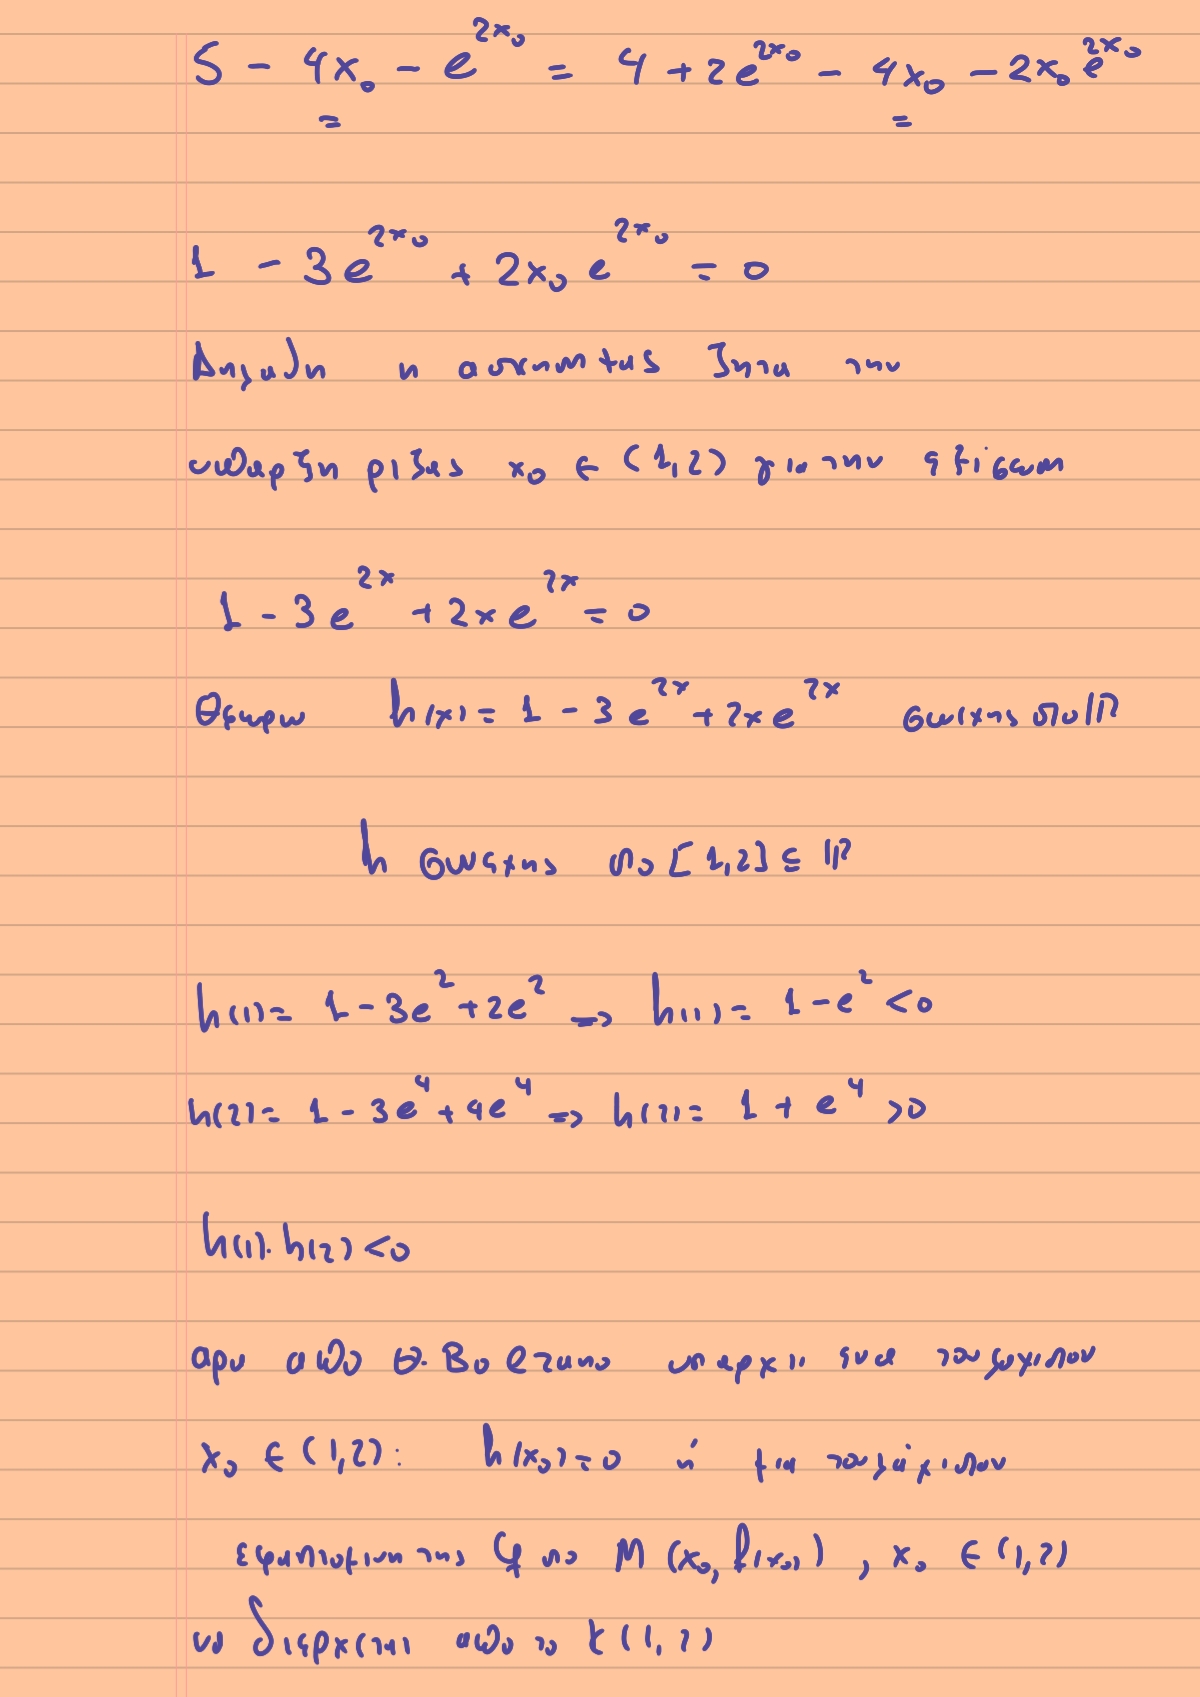 5 - 4x₀ - e^{2x₀} = 4 + 2e^{2x₀} - 4x₀ - 2x₀ e^{2x₀}
1 - 3e^{2x₀} + 2x₀ e^{2x₀} = 0
Δηλαδη η ασκηση μας ζητα την
υπαρξη ριζας x₀ ∈ (1,2) για την εξισωση
1 - 3e^{2x} + 2xe^{2x} = 0
Θεωρω h(x) = 1 - 3e^{2x} + 2xe^{2x} συνεχης στο ℝ
h συνεχης στο [1,2] ⊆ ℝ
h(1) = 1 - 3e² + 2e² => h(1) = 1 - e² < 0
h(2) = 1 - 3e⁴ + 4e⁴ => h(2) = 1 + e⁴ > 0
h(1)·h(2) < 0
αρα απο Θ. Bolzano υπαρχει ενα τουλαχιστον
x₀ ∈ (1,2): h(x₀) = 0 ή μια τουλάχιστον
εφαπτομενη της Cf στο M(x₀, f(x₀)), x₀ ∈ (1,2)
να διερχεται απο το K(1,2)